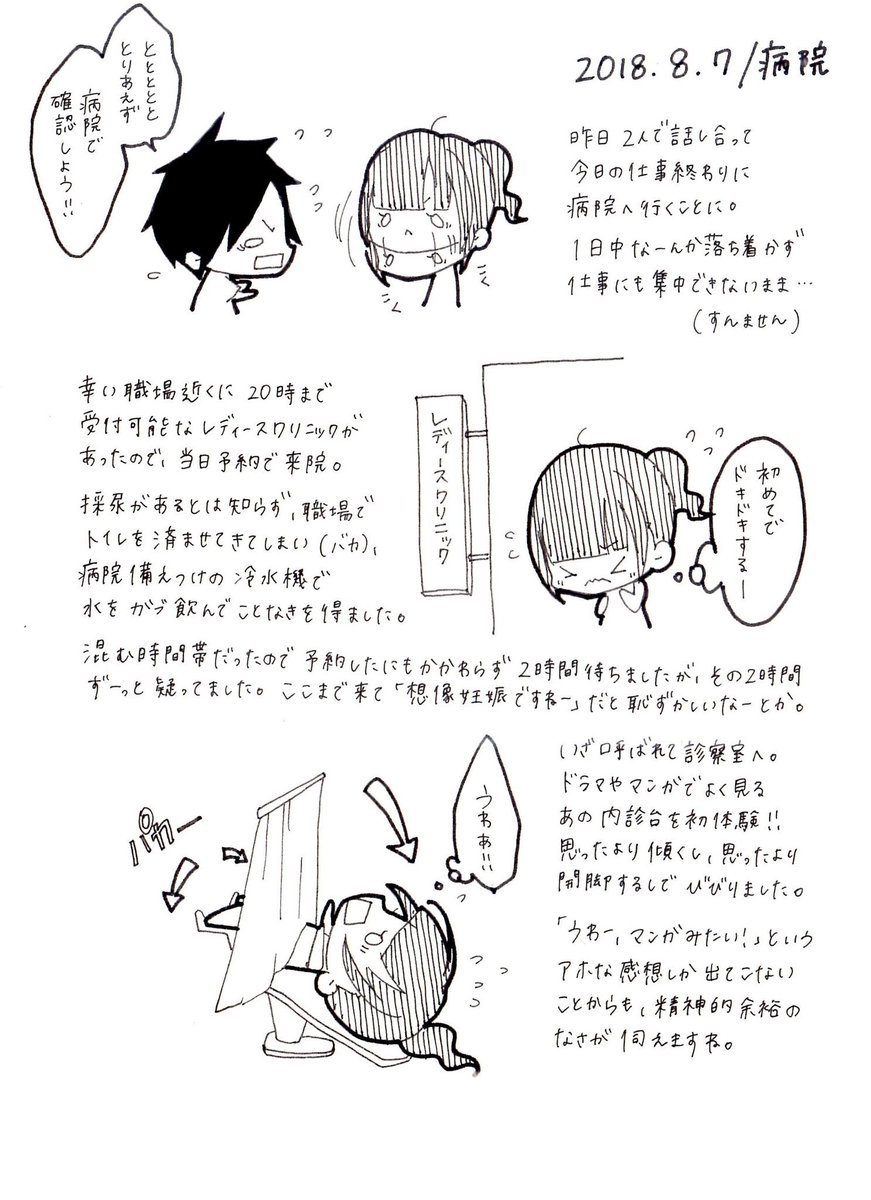 2018.8.7/病院
とととととと
とりあえず
病院で
確認しよう!!
昨日2人で話し合って
今日の仕事終わりに
病院へ行くことに。
1日中なーんか落ち着かず
仕事にも集中できないまま…
(すんません)
幸い職場近くに20時まで
受付可能なレディースクリニックが
あったので、当日予約で来院。
採尿があるとは知らず、職場で
トイレを済ませてきてしまい(バカ)、
病院備えつけの冷水機で
水をガブ飲んでことなきを得ました。
レディースクリニック
初めてで
ドキドキするー
混む時間帯だったので予約したにもかかわらず2時間待ちましたが、その2時間
ずーっと疑ってました。ここまで来て「想像妊娠ですねー」だと恥ずかしいなーとか。
いざ呼ばれて診察室へ。
ドラマやマンガでよく見る
あの内診台を初体験!!
思ったより傾くし、思ったより
開脚するしでびびりました。
「うわー、マンガみたい!」という
アホな感想しか出てこない
ことからも、精神的余裕の
なさが伺えますね。
うわぁ!!
パカー